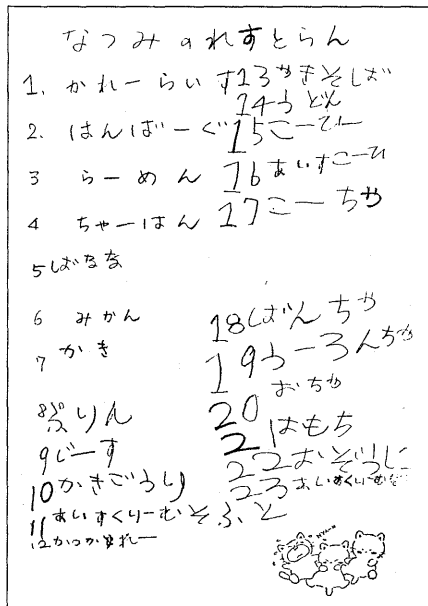 なつみのれすとらん
1. かれーらいす
2. はんばーぐ
3 らーめん
4 ちゃーはん
5 ばなな
6 みかん
7 かき
8 ぷりん
9 じーす
10 かきごうり
11 あいすくりーむそふと
12 かつかれー
13 やきそば
14 うどん
15 こーひー
16 あいすこーひ
17 こーちゃ
18 ばんちゃ
19 うーろんちゃ
20 おちゃ
21 はもち
22 おぞうに
23 あいすくりーむ